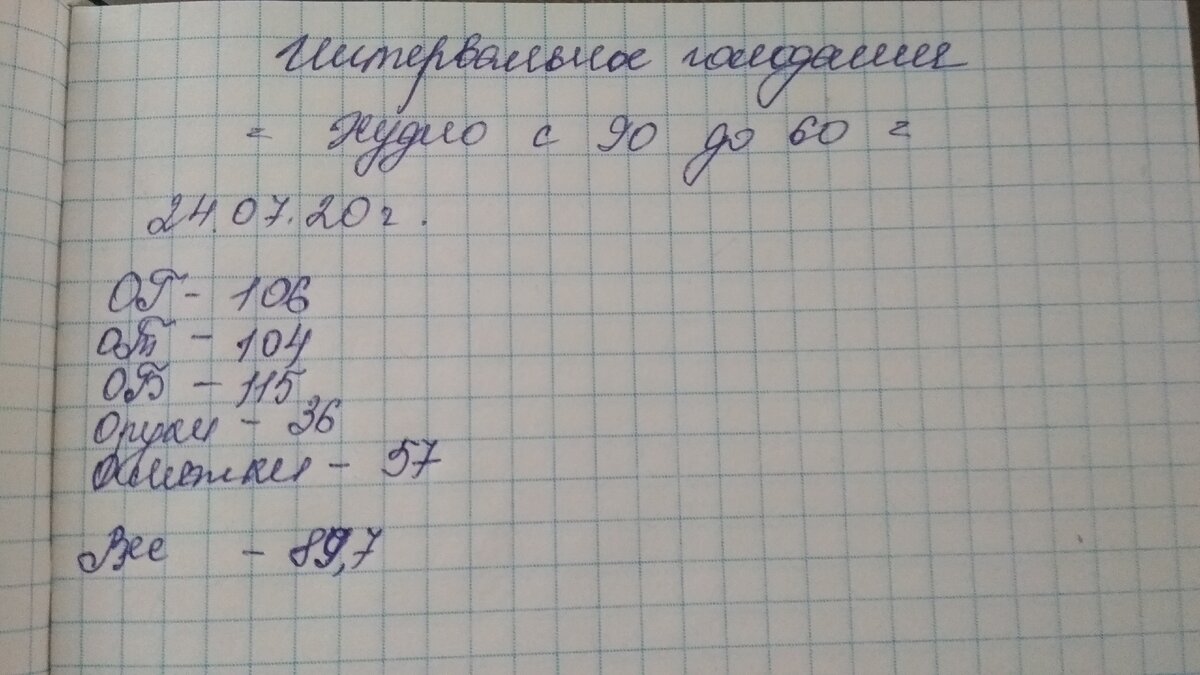 Интервальное голодание
= Худею с 90 до 60 =
24.07.20 г.
ОГ - 106
ОТ - 104
ОБ - 115
Оруки - 36
Оляжки - 57
Вес - 89,7